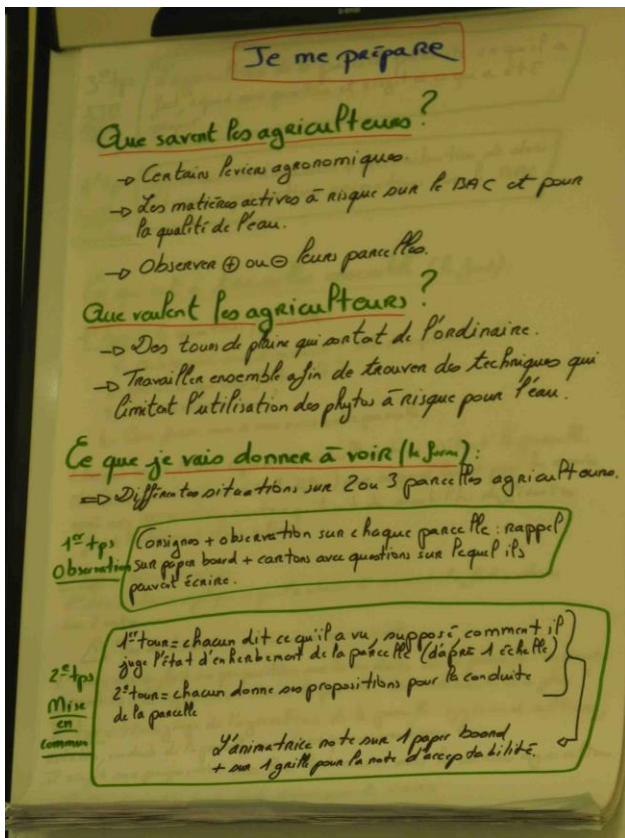 Je me prépare
Que savent les agriculteurs ?
→ Certains leviers agronomiques.
→ Les matières actives à risque sur le BAC et pour
la qualité de l'eau.
→ Observer ⊕ ou ⊖ leurs parcelles.
Que veulent les agriculteurs ?
→ Des tours de plaine qui sortent de l'ordinaire.
→ Travailler ensemble afin de trouver des techniques qui
limitent l'utilisation des phytos à risque pour l'eau.
Ce que je vais donner à voir (la forme) :
⇒ Différentes situations sur 2 ou 3 parcelles agriculteurs.
1er tps
Observation
Consignes + observation sur chaque parcelle : rappel
sur paper board + cartons avec questions sur lequel ils
peuvent écrire.
2e tps
Mise
en
commun
1er tour = chacun dit ce qu'il a vu, supposé, comment il
juge l'état d'enherbement de la parcelle (d'après 1 échelle)
2e tour = chacun donne ses propositions pour la conduite
de la parcelle
L'animatrice note sur 1 paper board
+ sur 1 grille pour la note d'acceptabilité.